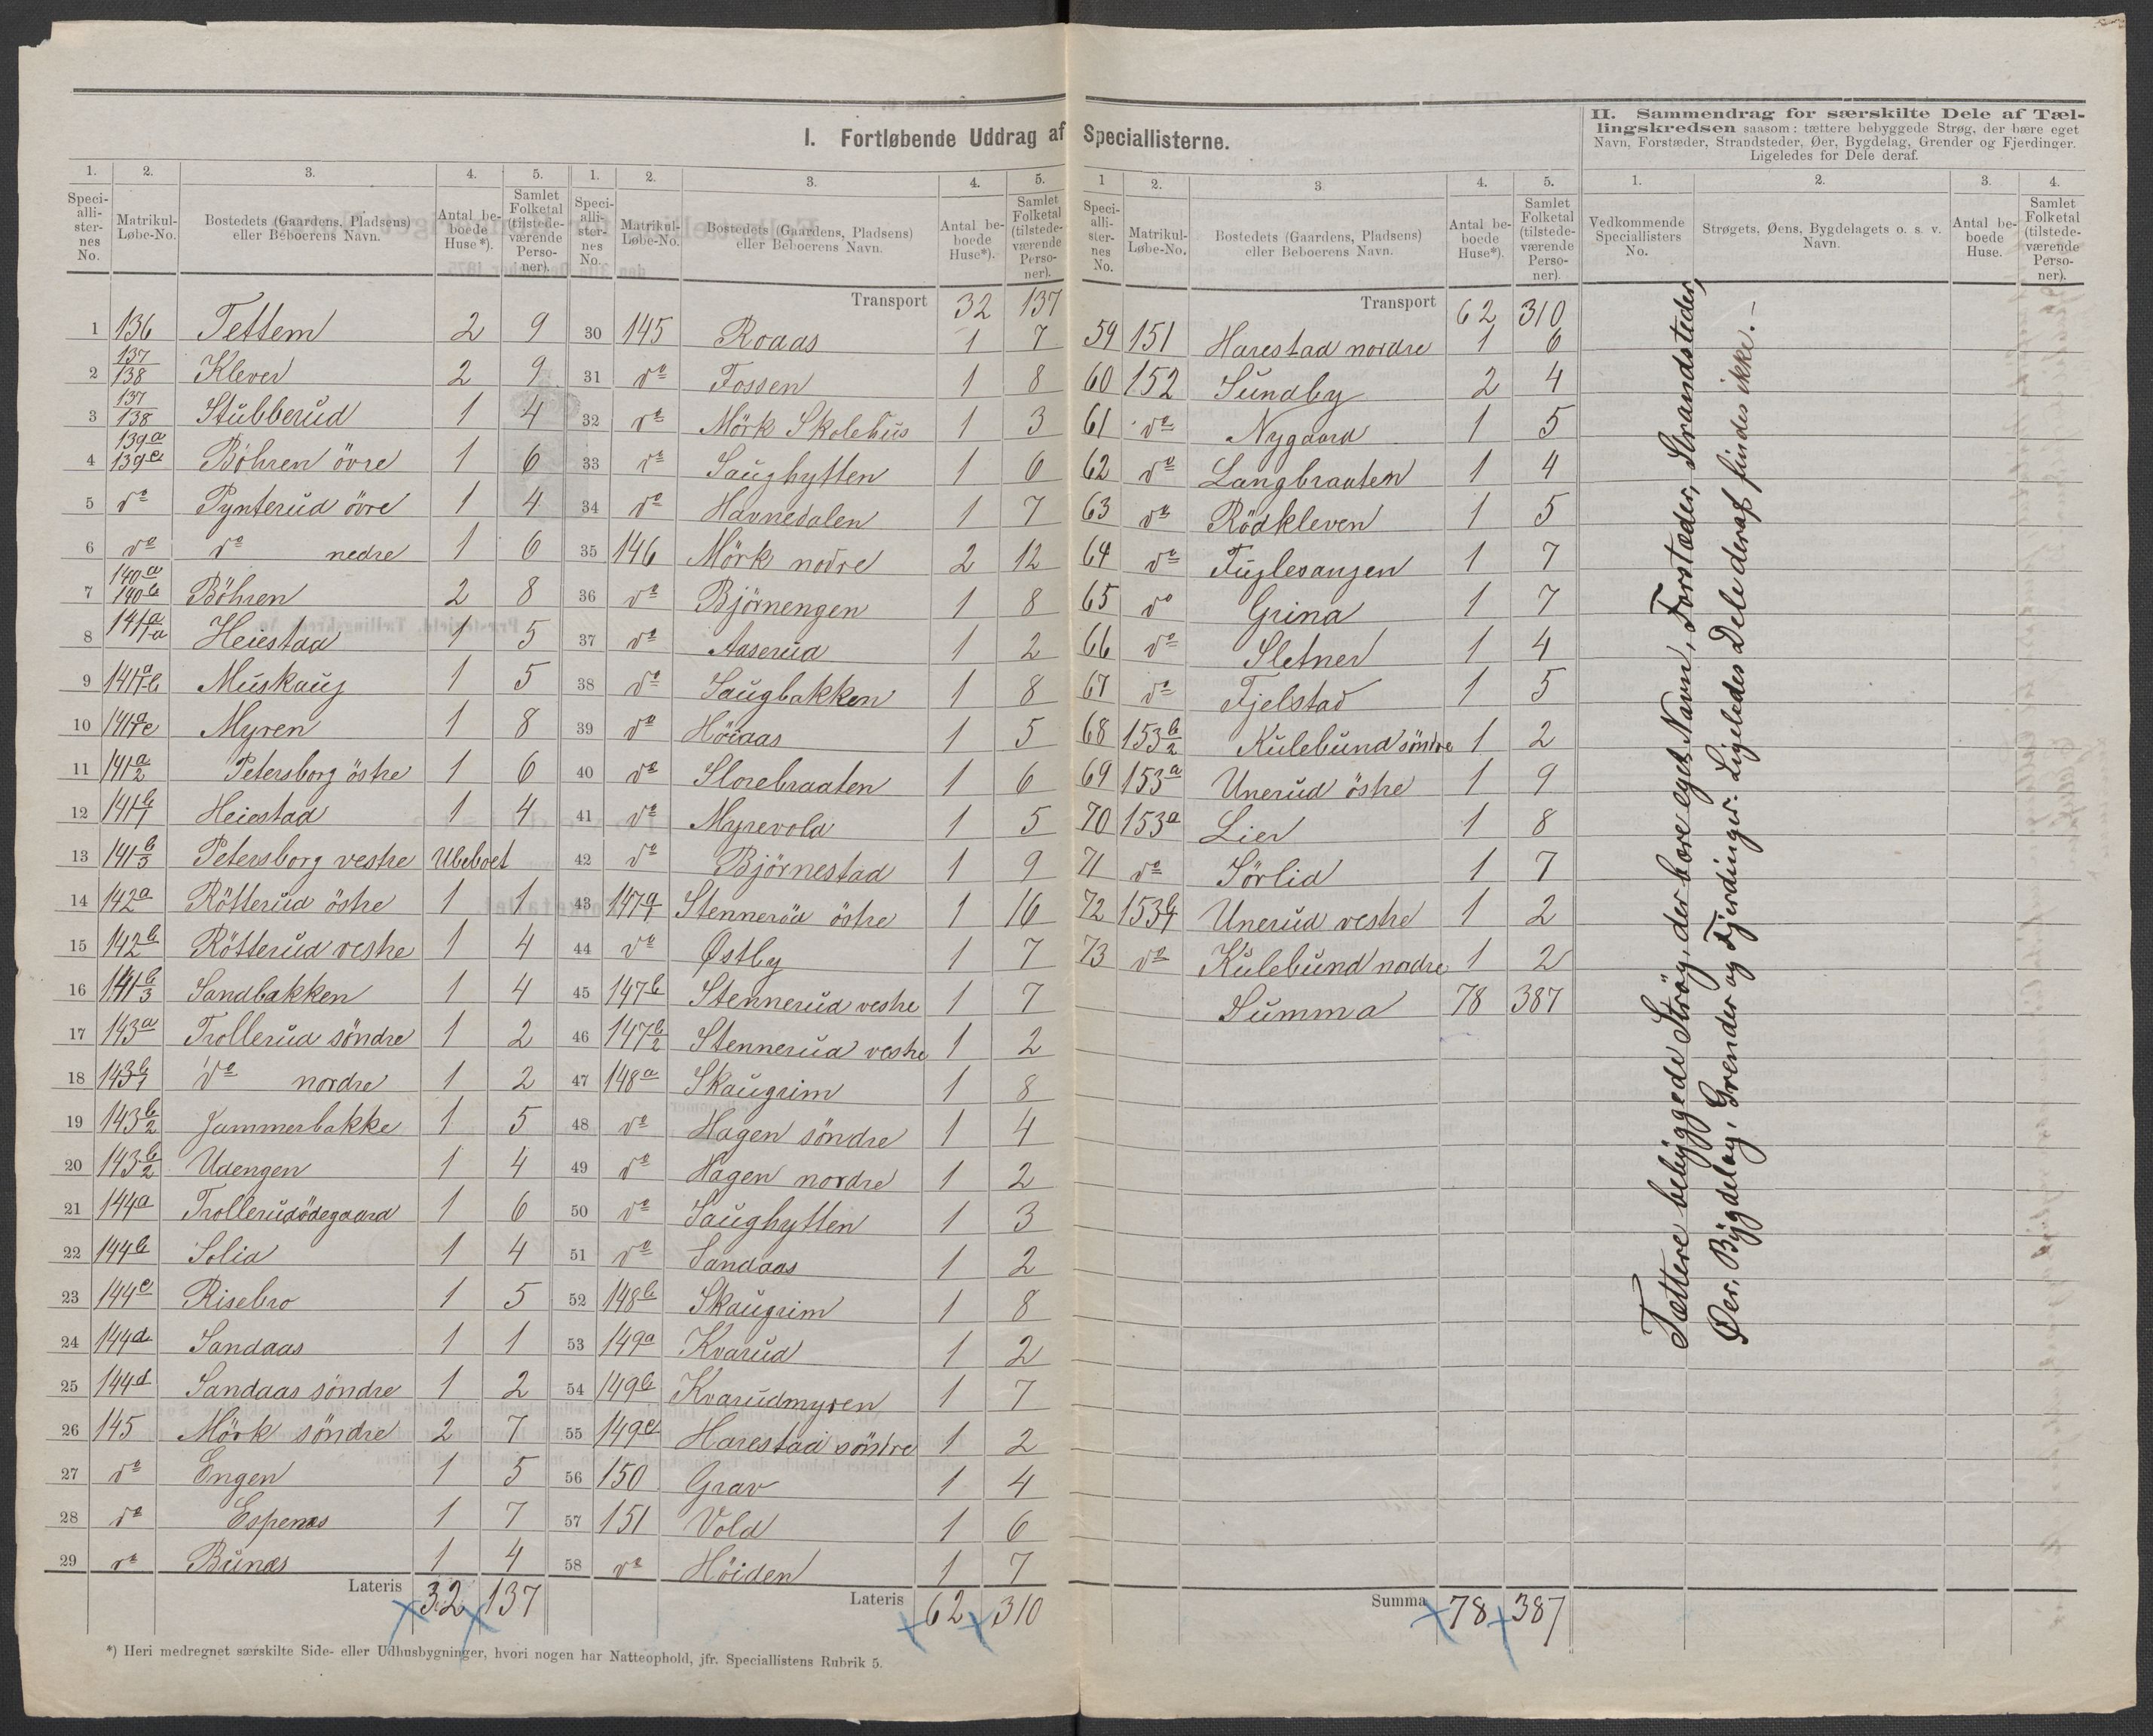 I. Fortløbende Uddrag af Speciallisterne.
1. 2. 3. 4. 5.
Specialli-sternes No. Matrikul-Løbe-No. Bostedets (Gaardens, Pladsens) eller Beboerens Navn. Antal beboede Huse*). Samlet Folketal (tilstedeværende Personer).
1 136 Tettem 2 9
2 137/138 Klever 2 9
3 137/138 Stubberud 1 4
4 139a 139c Böhren övre 1 6
5 do Pynterud övre 1 4
6 do do nedre 1 6
7 140a 140b Böhren 2 8
8 141a/a Heiestad 1 5
9 141a/b Muskaug 1 5
10 141a/c Myren 1 8
11 141a/2 Petersborg östre 1 6
12 141b/1 Heiestad 1 4
13 141b/3 Petersborg vestre Ubeboet
14 142a Rötterud östre 1 1
15 142b Rötterud vestre 1 4
16 141b/3 Sandbakken 1 4
17 143a Trollerud söndre 1 2
18 143b/1 do nordre 1 2
19 143b/2 Jammerbakke 1 5
20 143b/2 Udengen 1 4
21 144a Trollerudödegaard 1 6
22 144b Solia 1 4
23 144c Risebro 1 5
24 144d Sandaas 1 1
25 144d Sandaas söndre 1 2
26 145 Mörk söndre 2 7
27 do Engen 1 5
28 do Espenes 1 7
29 do Bunæs 1 4
Lateris 32 137
1. 2. 3. 4. 5.
Specialli-sternes No. Matrikul-Løbe-No. Bostedets (Gaardens, Pladsens) eller Beboerens Navn. Antal beboede Huse*). Samlet Folketal (tilstedeværende Personer).
Transport 32 137
30 145 Roaas 1 7
31 do Fossen 1 8
32 do Mörk Skolehus 1 3
33 do Saughytten 1 6
34 do Havnedalen 1 7
35 146 Mörk nodre 2 12
36 do Björnengen 1 8
37 do Aaserud 1 2
38 do Saugbakken 1 8
39 do Höiaas 1 5
40 do Storebraaten 1 6
41 do Myrevold 1 5
42 do Björnestad 1 9
43 147a/1 Stenneröd östre 1 16
44 do Østby 1 7
45 147b Stennerud vestre 1 7
46 147b/2 Stennerud vestre 1 2
47 148a Skaugrim 1 8
48 do Hagen söndre 1 4
49 do Hagen nordre 1 2
50 do Saughytten 1 3
51 do Sandaas 1 2
52 148b Skaugrim 1 8
53 149a Kvarud 1 2
54 149b Kvarudmyren 1 7
55 149c Harestad söndre 1 2
56 150 Grav 1 4
57 151 Vold 1 6
58 do Höiden 1 7
Lateris 62 310
1 2. 3 4. 5.
Specialli-sternes No. Matrikul-Løbe-No. Bostedets (Gaardens, Pladsens) eller Beboerens Navn. Antal beboede Huse*). Samlet Folketal (tilstedeværende Personer).
Transport 62 310
59 151 Harestad nordre 1 6
60 152 Sundby 2 4
61 do Nygaard 1 5
62 do Langbraaten 1 4
63 do Rödkleven 1 5
64 do Fuglesangen 1 7
65 do Grina 1 7
66 do Sletner 1 4
67 do Fjelstad 1 5
68 153b/2 Kulebund söndre 1 2
69 153a Unerud östre 1 9
70 153a Lier 1 8
71 do Sörlid 1 7
72 153b/1 Unerud vestre 1 2
73 do Kulebund nordre 1 2
Summa 78 387
Summa 78 387
II. Sammendrag for særskilte Dele af Tæl-
lingskredsen saasom: tættere bebyggede Strøg, der bære eget
Navn, Forstæder, Strandsteder, Øer, Bygdelag, Grender og Fjerdinger.
Ligeledes for Dele deraf.
1. 2. 3. 4.
Vedkommende Speciallisters No. Strøgets, Øens, Bygdelagets o. s. v. Navn. Antal beboede Huse. Samlet Folketal (tilstedeværende Personer).
Tættere bebyggede Strøg, der bære eget Navn, Forstæder, Strandsteder,
Øer, Bygdelag, Grender og Fjerdinger. Ligeledes Dele deraf findes ikke. -
*) Heri medregnet særskilte Side- eller Udhusbygninger, hvori nogen har Natteophold, jfr. Speciallistens Rubrik 5.